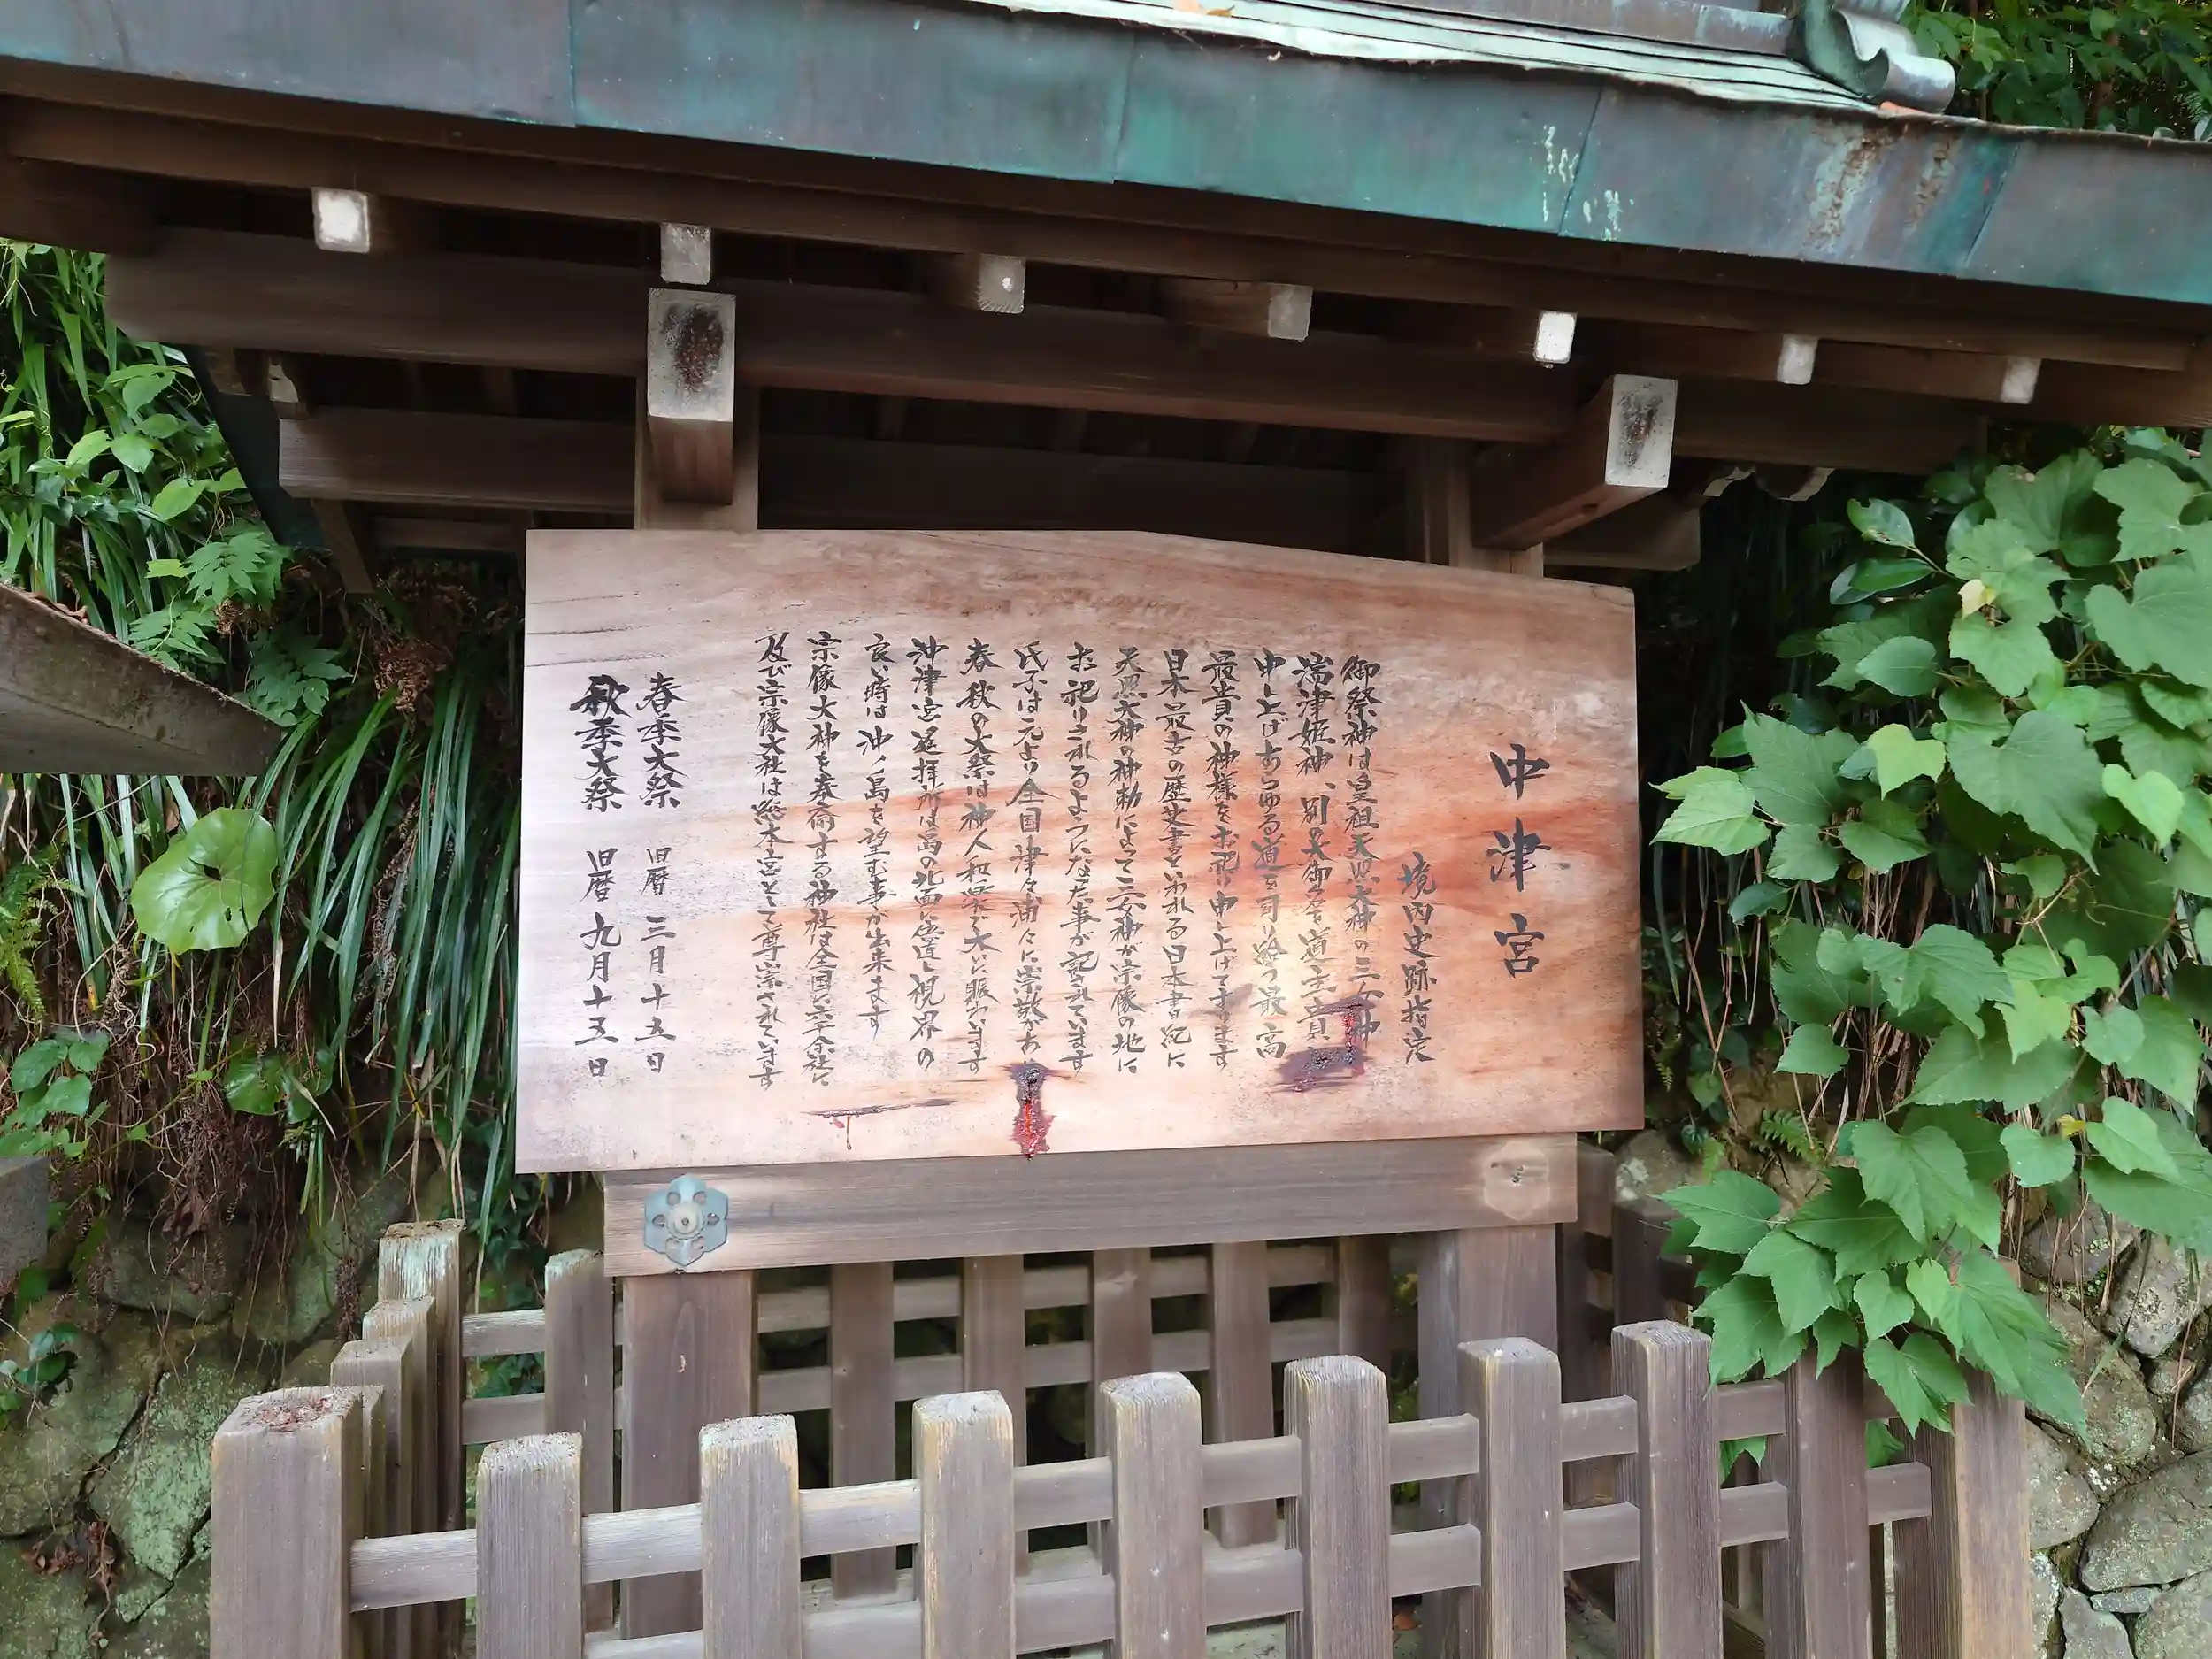 中津宮
境内史跡指定
御祭神は皇祖天照大神の三女神
湍津姫神、別の御名を道主貴と
申し上げあらゆる道を司り給う最高
最貴の神様をお祀り申し上げております
日本最古の歴史書といわれる日本書紀に
天照大神の神勅によって三女神が宗像の地に
お祀りされるようになった事が記されています
氏子は元より全国津々浦々に崇敬があ
春秋の大祭は神人和楽で大いに賑わいます
沖津宮遥拝所は島の北面に位置し視界の
良い時は沖ノ島を望む事が出来ます
宗像大神を奉斎する神社は全国に六千余社に
及び宗像大社は総本宮として尊崇されています
春季大祭 旧暦 三月十五日
秋季大祭 旧暦 九月十五日